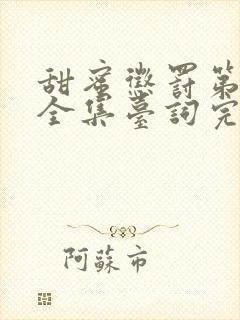 甜蜜懲罰第
全集臺詞完
阿蘇市